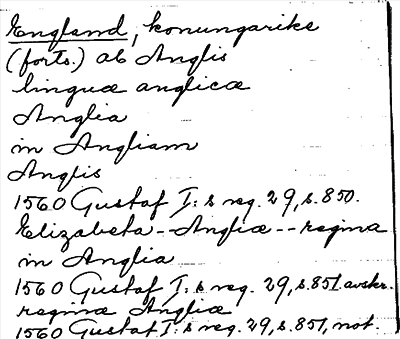 England, konungarike
(forts.) ab Anglis
linguæ anglicæ
Anglia
in Angliam
Anglis
1560 Gustaf I: s reg. 29, s. 850.
Elizabeta -- Angliæ -- regina
in Anglia
1560 Gustaf I: s reg. 29, s. 851. avskr.
reginæ Angliæ
1560 Gustaf I: s reg. 29, s. 851, not.